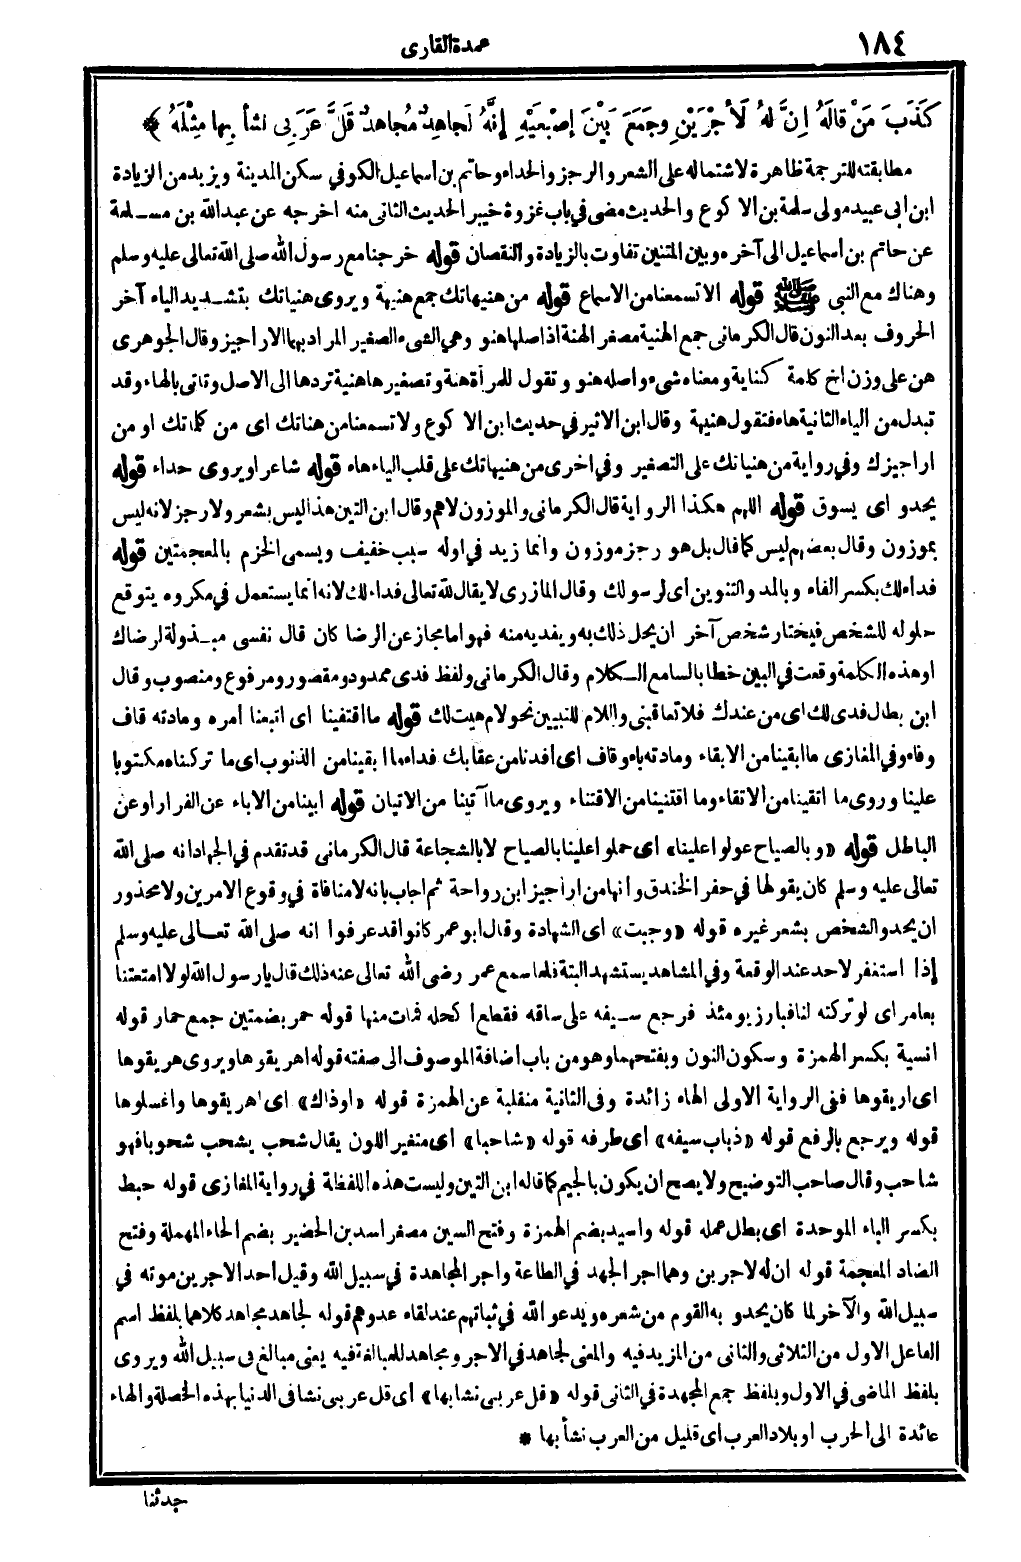 ١٨٤
عمدة القارى
كَذَبَ مَنْ قالَهُ إنَّ لَهُ لَأَجْرَيْنِ وجَمَعَ بَيْنَ إصْبَعَيْهِ إنَّهُ لَجاهِدٌ مُجاهِدٌ قَلَّ عَرَبِى نشأ بِها مِثْلَهُ ﴾
مطابقته للترجمة ظاهرة لاشتماله على الشعر والرجز والحداء وحاتم بن اسماعيل الكوفي سكن المدينة ويزيد من الزيادة
ابن ابى عبيد مولى سلمة بن الاكوع والحديث مضى في باب غزوة خيبر الحديث الثانى منه اخرجه عن عبدالله بن مسلمة
عن حاتم بن اسماعيل الى آخره وبين المتنين تفاوت بالزيادة والنقصان قوله خرجنا مع رسول الله صلى الله تعالى عليه وسلم
وهناك مع النبى ﷺ قوله الا تسمعنا من الاسماع قوله من هنيهاتك جمع هنيهة ويروى هنياتك بتشديد الياء آخر
الحروف بعد النون قال الكرمانى جمع الهنية مصغر الهنة اذ اصلها هنو وهي الشىء الصغير المراد بها الاراجيز وقال الجوهرى
هن على وزن اخ كلمة كناية ومعناه شىء واصله هنو وتقول للمرأة هنة وتصغيرها هنية تردها الى الاصل وتاتى بالهاء وقد
تبدل من الياء الثانية هاء فتقول هنيهة وقال ابن الاثير في حديث ابن الاكوع ولا تسمعنا من هناتك اى من كلماتك او من
اراجيزك وفي رواية من هنياتك على التصغير وفي اخرى من هنيهاتك على قلب الياء هاء قوله شاعرا ويروى حداء قوله
يحدو اى يسوق قوله اللهم هكذا الرواية قال الكرمانى والموزون لاهم وقال ابن التين هذا ليس بشعر ولا رجز لانه ليس
بموزون وقال بعضهم ليس كما قال بل هو رجز موزون وانما زيد في اوله سبب خفيف ويسمى الخزم بالمعجمتين قوله
فداء لك بكسر الفاء وبالمد والتنوين اى لرسولك وقال المازرى لا يقال لله تعالى فداء لك لانه انما يستعمل في مكروه يتوقع
حلوله للشخص فيختار شخص آخر ان يحل ذلك به ويفديه منه فهو اما مجاز عن الرضا كان قال نفسى مبذولة لرضاك
او هذه الكلمة وقعت في البين خطابا لسامع الكلام وقال الكرمانى ولفظ فدى ممدود ومقصور ومرفوع ومنصوب وقال
ابن بطال فدى لك اى من عندك فلا تعاقبنى واللام للتبيين نحو لام هيت لك قوله ما اقتفينا اى اتبعنا امره ومادته قاف
وفاء وفي المغازى ما ابقينا من الابقاء ومادته باء وقاف اى افدنا من عقابك فداء ما ابقينا من الذنوب اى ما تركناه مكتوبا
علينا وروى ما اتقينا من الاتقاء وما اقتنينا من الاقتناء ويروى ما آتينا من الاتيان قوله ابينا من الاباء عن الفرار او عن
الباطل قوله «وبالصياح عولوا علينا» اى حملوا علينا بالصياح لا بالشجاعة قال الكرمانى قد تقدم في الجهاد انه صلى الله
تعالى عليه وسلم كان يقولها في حفر الخندق وانها من اراجيز ابن رواحة ثم اجاب بانه لا منافاة في وقوع الامرين ولا محذور
ان يحدو الشخص بشعر غيره قوله «وجبت» اى الشهادة وقال ابو عمر كانوا قد عرفوا انه صلى الله تعالى عليه وسلم
إذا استغفر لاحد عند الوقعة وفي المشاهد يستشهد البتة فلما سمع عمر رضى الله تعالى عنه ذلك قال يا رسول الله لولا امتعتنا
بعامر اى لو تركته لنا فبارز يومئذ فرجع سيفه على ساقه فقطع اكحله فمات منها قوله حمر بضمتين جمع حمار قوله
انسية بكسر الهمزة وسكون النون وبفتحهما وهو من باب اضافة الموصوف الى صفته قوله اهريقوها ويروى هريقوها
اى اريقوها ففى الرواية الاولى الهاء زائدة وفى الثانية منقلبة عن الهمزة قوله «اوذاك» اى اهريقوها واغسلوها
قوله ويرجع بالرفع قوله «ذباب سيفه» اى طرفه قوله «شاحبا» اى متغير اللون يقال شحب يشحب شحوبا فهو
شاحب وقال صاحب التوضيح ولا يصح ان يكون بالجيم كما قاله ابن التين وليست هذه اللفظة في رواية المغازى قوله حبط
بكسر الباء الموحدة اى بطل عمله قوله واسيد بضم الهمزة وفتح السين مصغر اسد بن الحضير بضم الحاء المهملة وفتح
الضاد المعجمة قوله ان له لاجرين وهما اجر الجهد في الطاعة واجر المجاهدة في سبيل الله وقيل احد الاجرين موته في
سبيل الله والآخر لما كان يحدو به القوم من شعره ويدعو الله في ثباتهم عند لقاء عدوهم قوله لجاهد مجاهد كلاهما بلفظ اسم
الفاعل الاول من الثلاثى والثانى من المزيد فيه والمعنى لجاهد في الاجر ومجاهد للمبالغة فيه يعنى مبالغ فى سبيل الله ويروى
بلفظ الماضى في الاول وبلفظ جمع المجهدة في الثانى قوله «قل عربى نشا بها» اى قل عربى نشا فى الدنيا بهذه الخصلة والهاء
عائدة الى الحرب او بلاد العرب اى قليل من العرب نشأ بها *
حدثنا